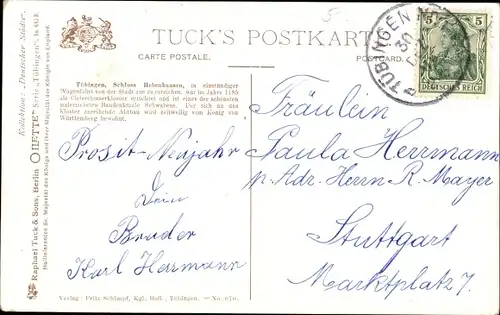 5
TUCK'S POSTKART
CARTE POSTALE. POSTCARD.
TÜBINGEN
30
5 5
DEUTSCHES REICH
Kollektion: „Deutscher Städte“
Raphael Tuck & Sons, Berlin OILETTE Serie „Tübingen“
Hoflieferanten Sr. Majestät des Königs und Ihrer Majestät der Königin von England.
Tübingen, Schloss Hohenhausen, in einstündiger
Wagenfahrt von der Stadt aus zu erreichen, war im Jahre 1185
als Cisterzienserkloster errichtet und ist eines der schönsten
malerischsten Baudenkmale Schwabens. Der sich an das
Kloster anreihende Abtbau wird zeitweilig vom König von
Württemberg bewohnt.
Prosit-Neujahr
Dein
Bruder
Karl Hermann
Fräulein
Paula Herrmann
p. Adr. Herrn R. Mayer
Stuttgart
Marktplatz 7.
Verlag: Fritz Schimpf, Kgl. Hofl., Tübingen. — No. 670.